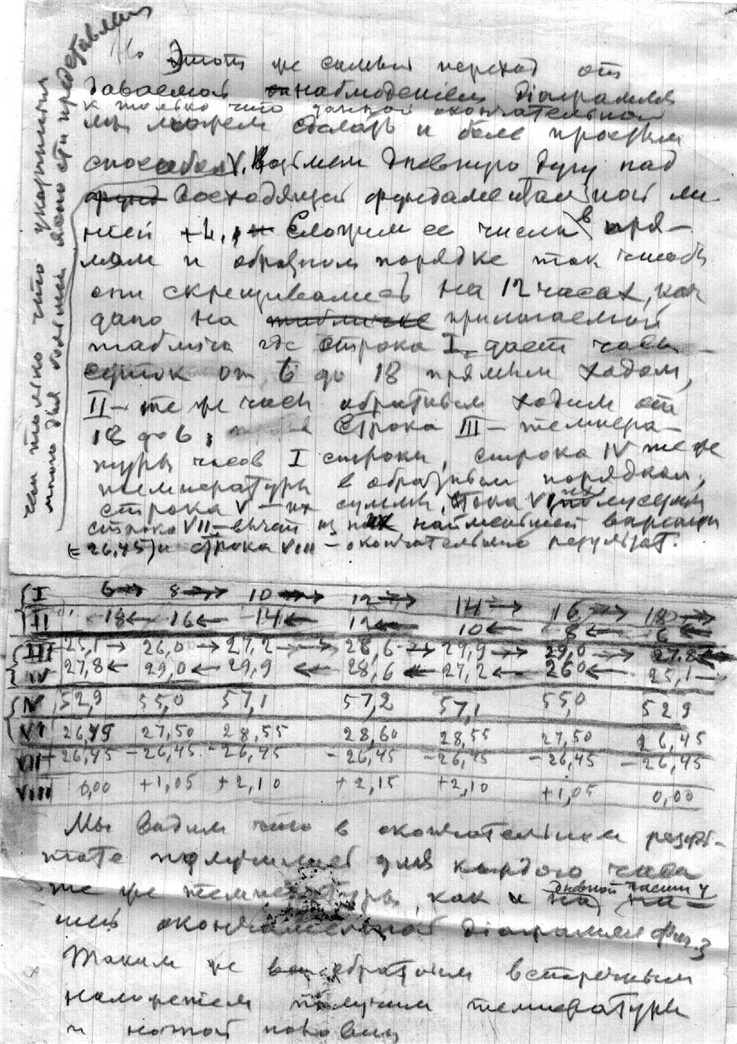 Но Этот же самый переход от
даваемой наблюдением діаграммы
к только что данной окончательной
мы можем сделать и более простым
способом. Возьмем дневную дугу над
восходящей фундаментальной ли
нией +4. Сложим ее числа в пря-
мом и обратном порядке так чтоб
они скрещивались на 12 часах, как
дано на табличке прилагаемой
таблице где строка I дает часы
суток от 6 до 18 прямым ходом,
II – те же часы обратным ходом от
18 до 6, строка III – темпера-
туры часов I строки, строка IV те же
температуры в обратном порядке,
строка V – их суммы, строка VI их полусуммы
строка VII – вычет из них наименьшей вариации
(=26,45) и строка VIII – окончательный результат.
чем только что указанный
много дал большей ясности представлений
I 6 8 10 12 14 16 18
II 18 16 14 12 10 8 6
III 25,1 26,0 27,2 28,6 29,9 29,0 27,8
IV 27,8 29,0 29,9 28,6 27,2 26,0 25,1
V 52,9 55,0 57,1 57,2 57,1 55,0 52,9
VI 26,45 27,50 28,55 28,60 28,55 27,50 26,45
VII -26,45 -26,45 -26,45 -26,45 -26,45 -26,45 -26,45
VIII 0,00 +1,05 +2,10 +2,15 +2,10 +1,05 0,00
Мы видим что в окончательном резуль-
тате получились для каждого часа
те же температуры, как и на дневной части на-
шей окончательной діаграммы Фиг. 3
Таким же обратным встречным
наложением получим температуры
и ночной половины